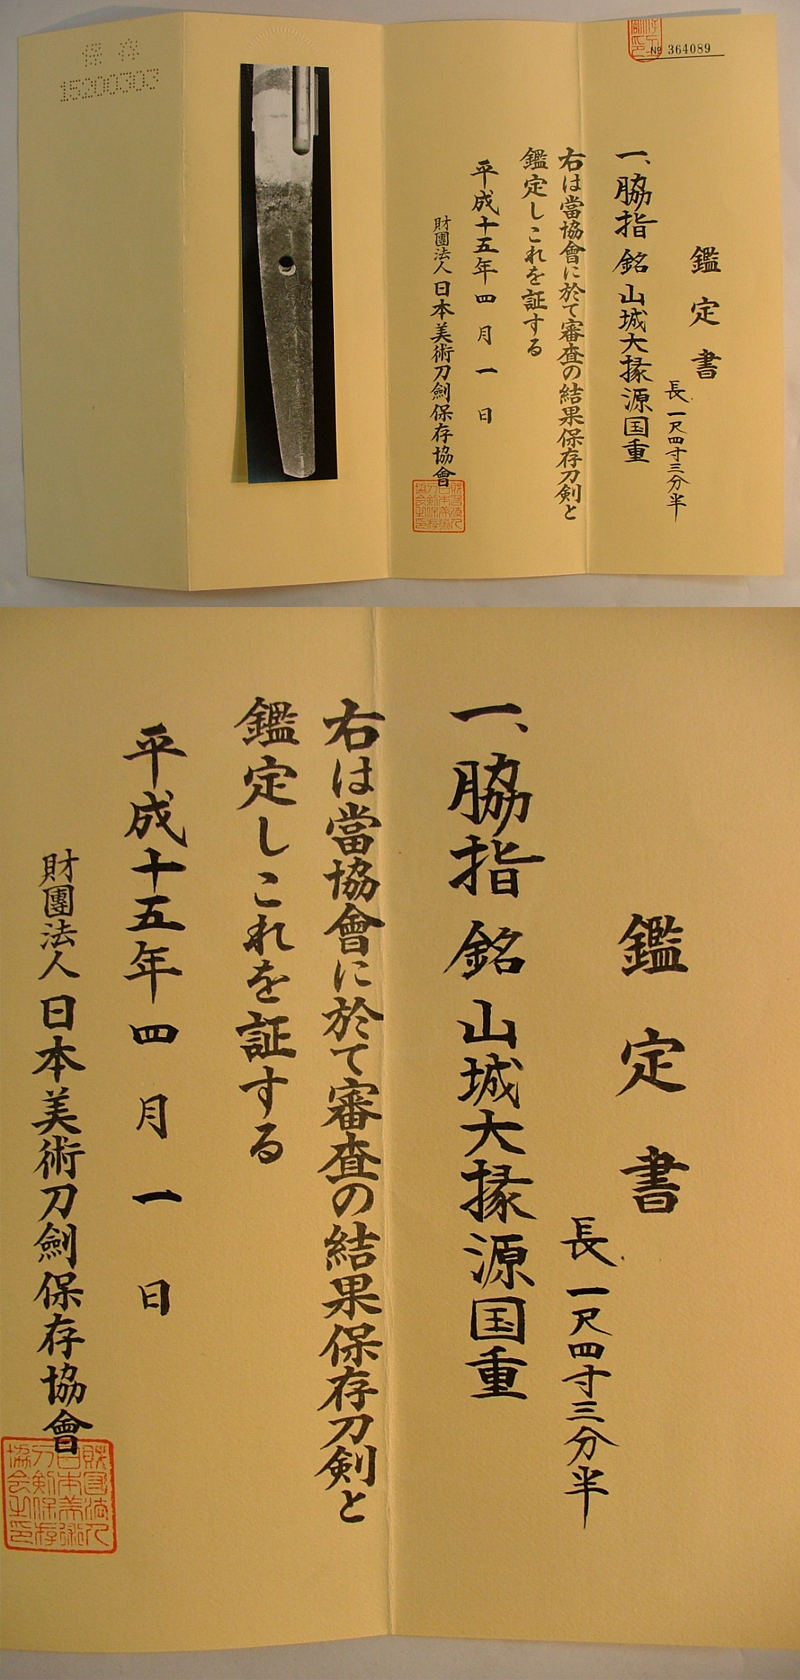 № 364089
鑑定書
長一尺四寸三分半
一、脇指 銘 山城大掾源国重
右は當協會に於て審査の結果保存刀剣と
鑑定しこれを証する
平成十五年四月一日
財團法人日本美術刀劍保存協會
保存
15200303
鑑定書
長一尺四寸三分半
一、脇指 銘 山城大掾源国重
右は當協會に於て審査の結果保存刀剣と
鑑定しこれを証する
平成十五年四月一日
財團法人日本美術刀劍保存協會